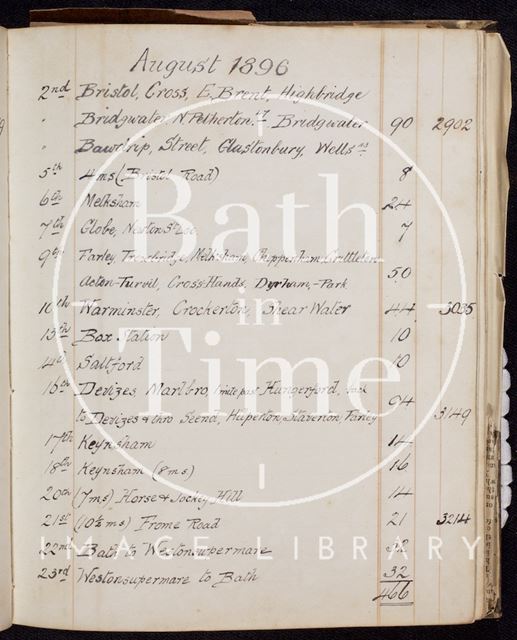 August 1896
2nd Bristol, Cross, E Brent, Highbridge
" Bridgwater N Petherton Bridgwater 90 2902
" Bawdrip, Street, Glastonbury, Wells
5th 4 ms (Bristol Road) 8
6th Melksham 24
7th Globe, Newton St Loe 7
9th Farley, Trowbridge, Melksham, Chippenham, Grittleton
Acton-Turvil, Cross-Hands, Dyrham-Park 50
10th Warminster, Crockerton, Shear Water 44 3035
13th Box Station 10
14th Saltford 10
15th Devizes, Marlbro, 1 mile past Hungerford, back
to Devizes & thro Seend, Hilperton, Staverton, Farley 94 3149
17th Keynsham 14
18th Keynsham (8 ms) 16
20th (7 ms) Horse & Jockey Hill 14
21st (10½ ms) Frome Road 21 3214
22nd Bath to Westonsupermare 32
23rd Westonsupermare to Bath 32
466
Bath
in
Time
IMAGE LIBRARY